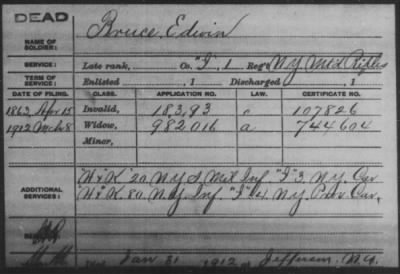 DEAD
NAME OF SOLDIER: Bruce, Edwin
SERVICE: Late rank, Co. "I", 1 Reg't N.Y. Mtd Rifles
TERM OF SERVICE: Enlisted , 1 Discharged , 1
DATE OF FILING. CLASS. APPLICATION NO. LAW. CERTIFICATE NO.
1863, Apr 15 Invalid, 18,393 107826
1912 Mch 8 Widow, 982016 a 744604
Minor,
ADDITIONAL SERVICES: "H" & "K" 20 N.Y. S. Mil Inf "I" 3 N.Y. Cav
"H" & K. 80 N.Y. Inf. "I" 4 N.Y. Prov Cav.
Jan 31 1912 at Jefferson, N.Y.